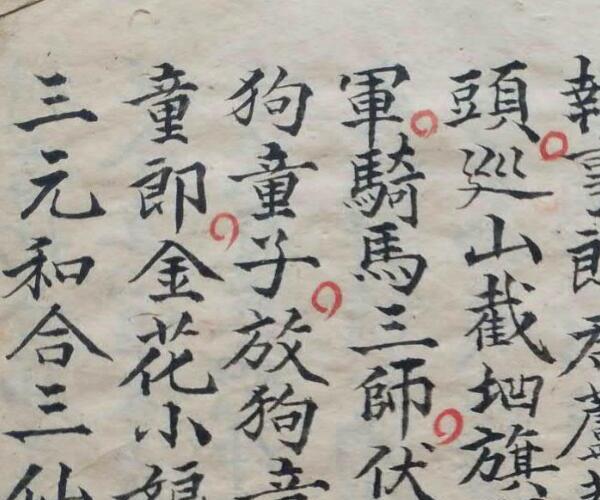 事郎
頭。廵山截旗
軍。騎馬三師。伏
狗童子。放狗童
童郎。金花小娘
三元和合三仙